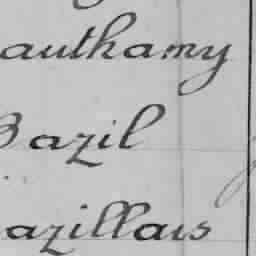 authamy
Bazil
azillais